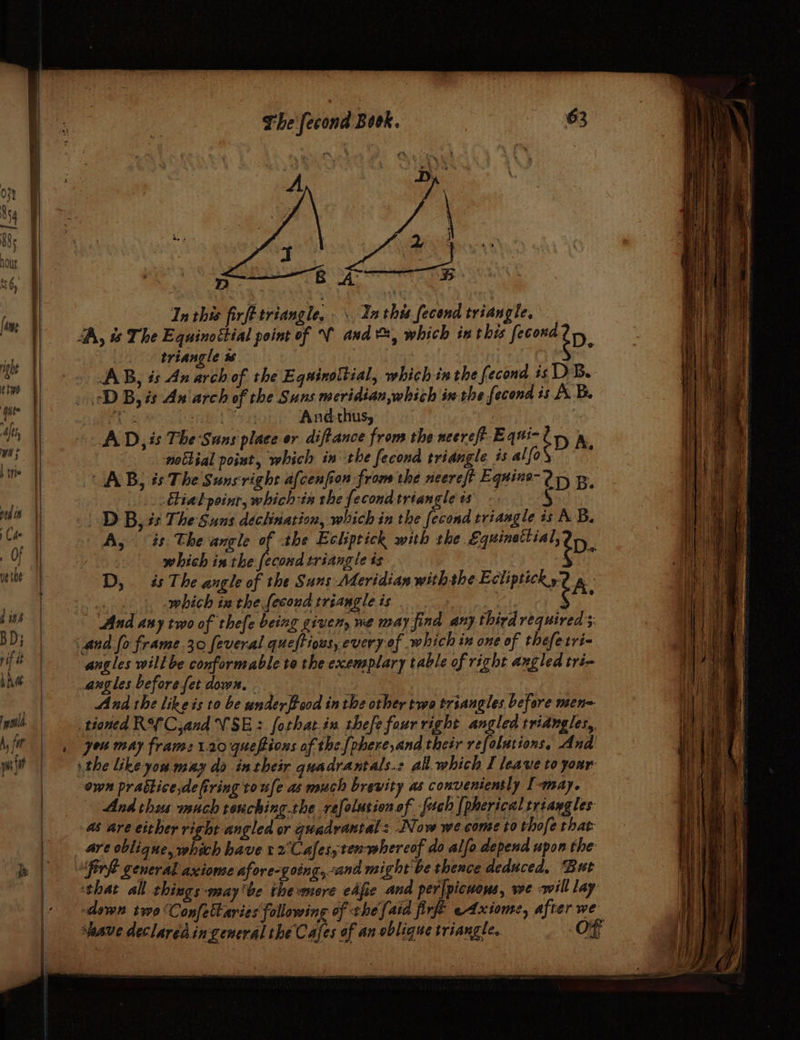 The ſecond Book. 63
A D
1 2
D B A B
In this firſt triangle. In this ſecond triangle.
A, is The Equinoctial point of ♈ and ♎, which in this ſecond triangle is } D.
A B, is An arch of the Equinoctial, which in the ſecond is D B.
D B, is An arch of the Suns meridian, which in the ſecond is A B.
And thus,
A D, is The Suns place or diſtance from the neereſt Equi-
noctial point, which in the ſecond triangle is alſo } D A.
A B, is The Suns right aſcenſion from the neereſt Equino-
ctial point, which in the ſecond triangle is } D B.
D B, is The Suns declination, which in the ſecond triangle is A B.
A, is The angle of the Ecliptick with the Equinoctial,
which in the ſecond triangle is } D.
D, is The angle of the Suns Meridian with the Ecliptick,
which in the ſecond triangle is } A.
And any two of theſe being given, we may find any third required;
and ſo frame 30 ſeveral queſtions, every of which in one of theſe tri-
angles will be conformable to the exemplary table of right angled tri-
angles before ſet down.
And the like is to be underſtood in the other two triangles before men-
tioned R♈C, and VSE: ſo that in theſe four right angled triangles,
you may frame 120 queſtions of the ſphere, and their reſolutions. And
the like you may do in their quadrantals: all which I leave to your
own practice, deſiring to uſe as much brevity as conveniently I may.
And thus much touching the reſolution of ſuch ſpherical triangles
as are either right angled or quadrantal: Now we come to thoſe that
are oblique, which have 12 Caſes, ten whereof do alſo depend upon the
firſt general axiome afore-going, and might be thence deduced. But
that all things may be the more eaſie and perſpicuous, we will lay
down two Conſectaries following of the ſaid firſt Axiome, after we
have declared in general the Caſes of an oblique triangle.
Of